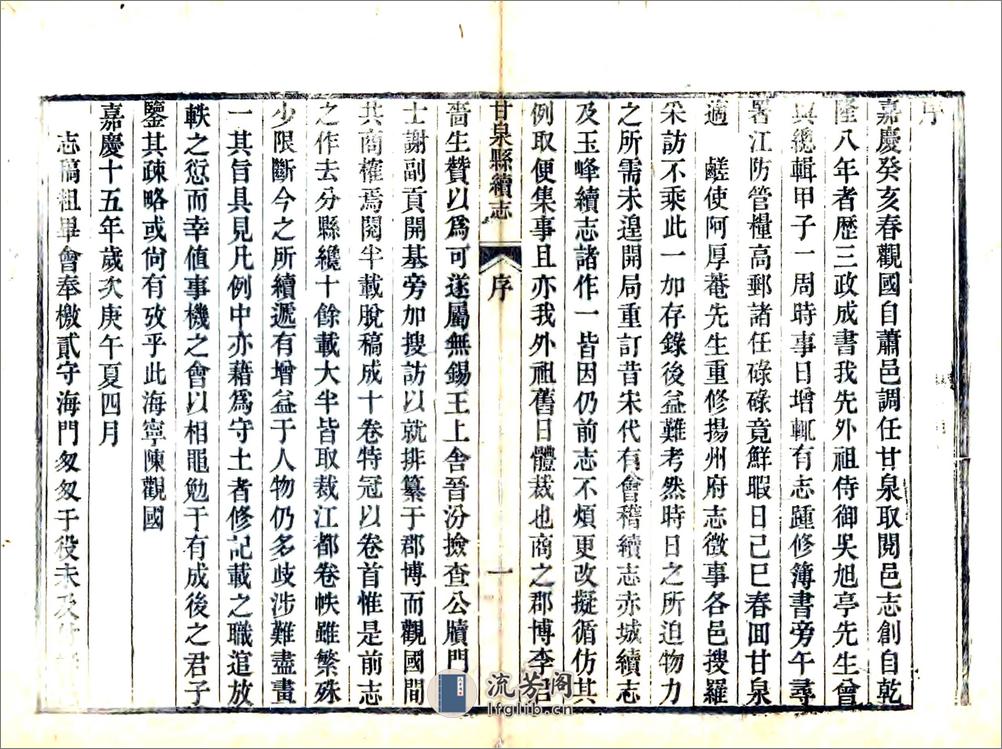 序
嘉慶癸亥春觀國自蕭邑調任甘泉取閱邑志創自乾
隆八年者歷三政成書我先外祖侍御吳旭亭先生曾
與總輯甲子一周時事日增輒有志踵修簿書旁午尋
署江防管糧高郵諸任碌碌竟鮮暇日己巳春回甘泉
適　鹺使阿厚菴先生重修揚州府志徵事各邑搜羅
采訪不乘此一加存錄後益難考然時日之所迫物力
之所需未遑開局重訂昔宋代有會稽續志赤城續志
及玉峰續志諸作一皆因仍前志不煩更改擬循仿其
例取便集事且亦我外祖舊日體裁也商之郡博李君
甘泉縣續志
序
一
嗇生贊以爲可遂屬無錫王上舍晉汾撿查公牘門
士謝副貢開基旁加搜訪以就排纂于郡博而觀國間
共商榷焉閱半載脫稿成十卷特冠以卷首惟是前志
之作去分縣纔十餘載大半皆取裁江都卷帙雖繁殊
少限斷今之所續遞有增益于人物仍多歧涉難盡畫
一其旨具見凡例中亦藉爲守土者修記載之職逭放
軼之愆而幸值事機之會以相黽勉于有成後之君子
鑒其疎略或尙有攷乎此海寧陳觀國
嘉慶十五年歲次庚午夏四月
志稿粗畢會奉檄貳守海門匆匆于役未及
流芳閣
lfglib.cn